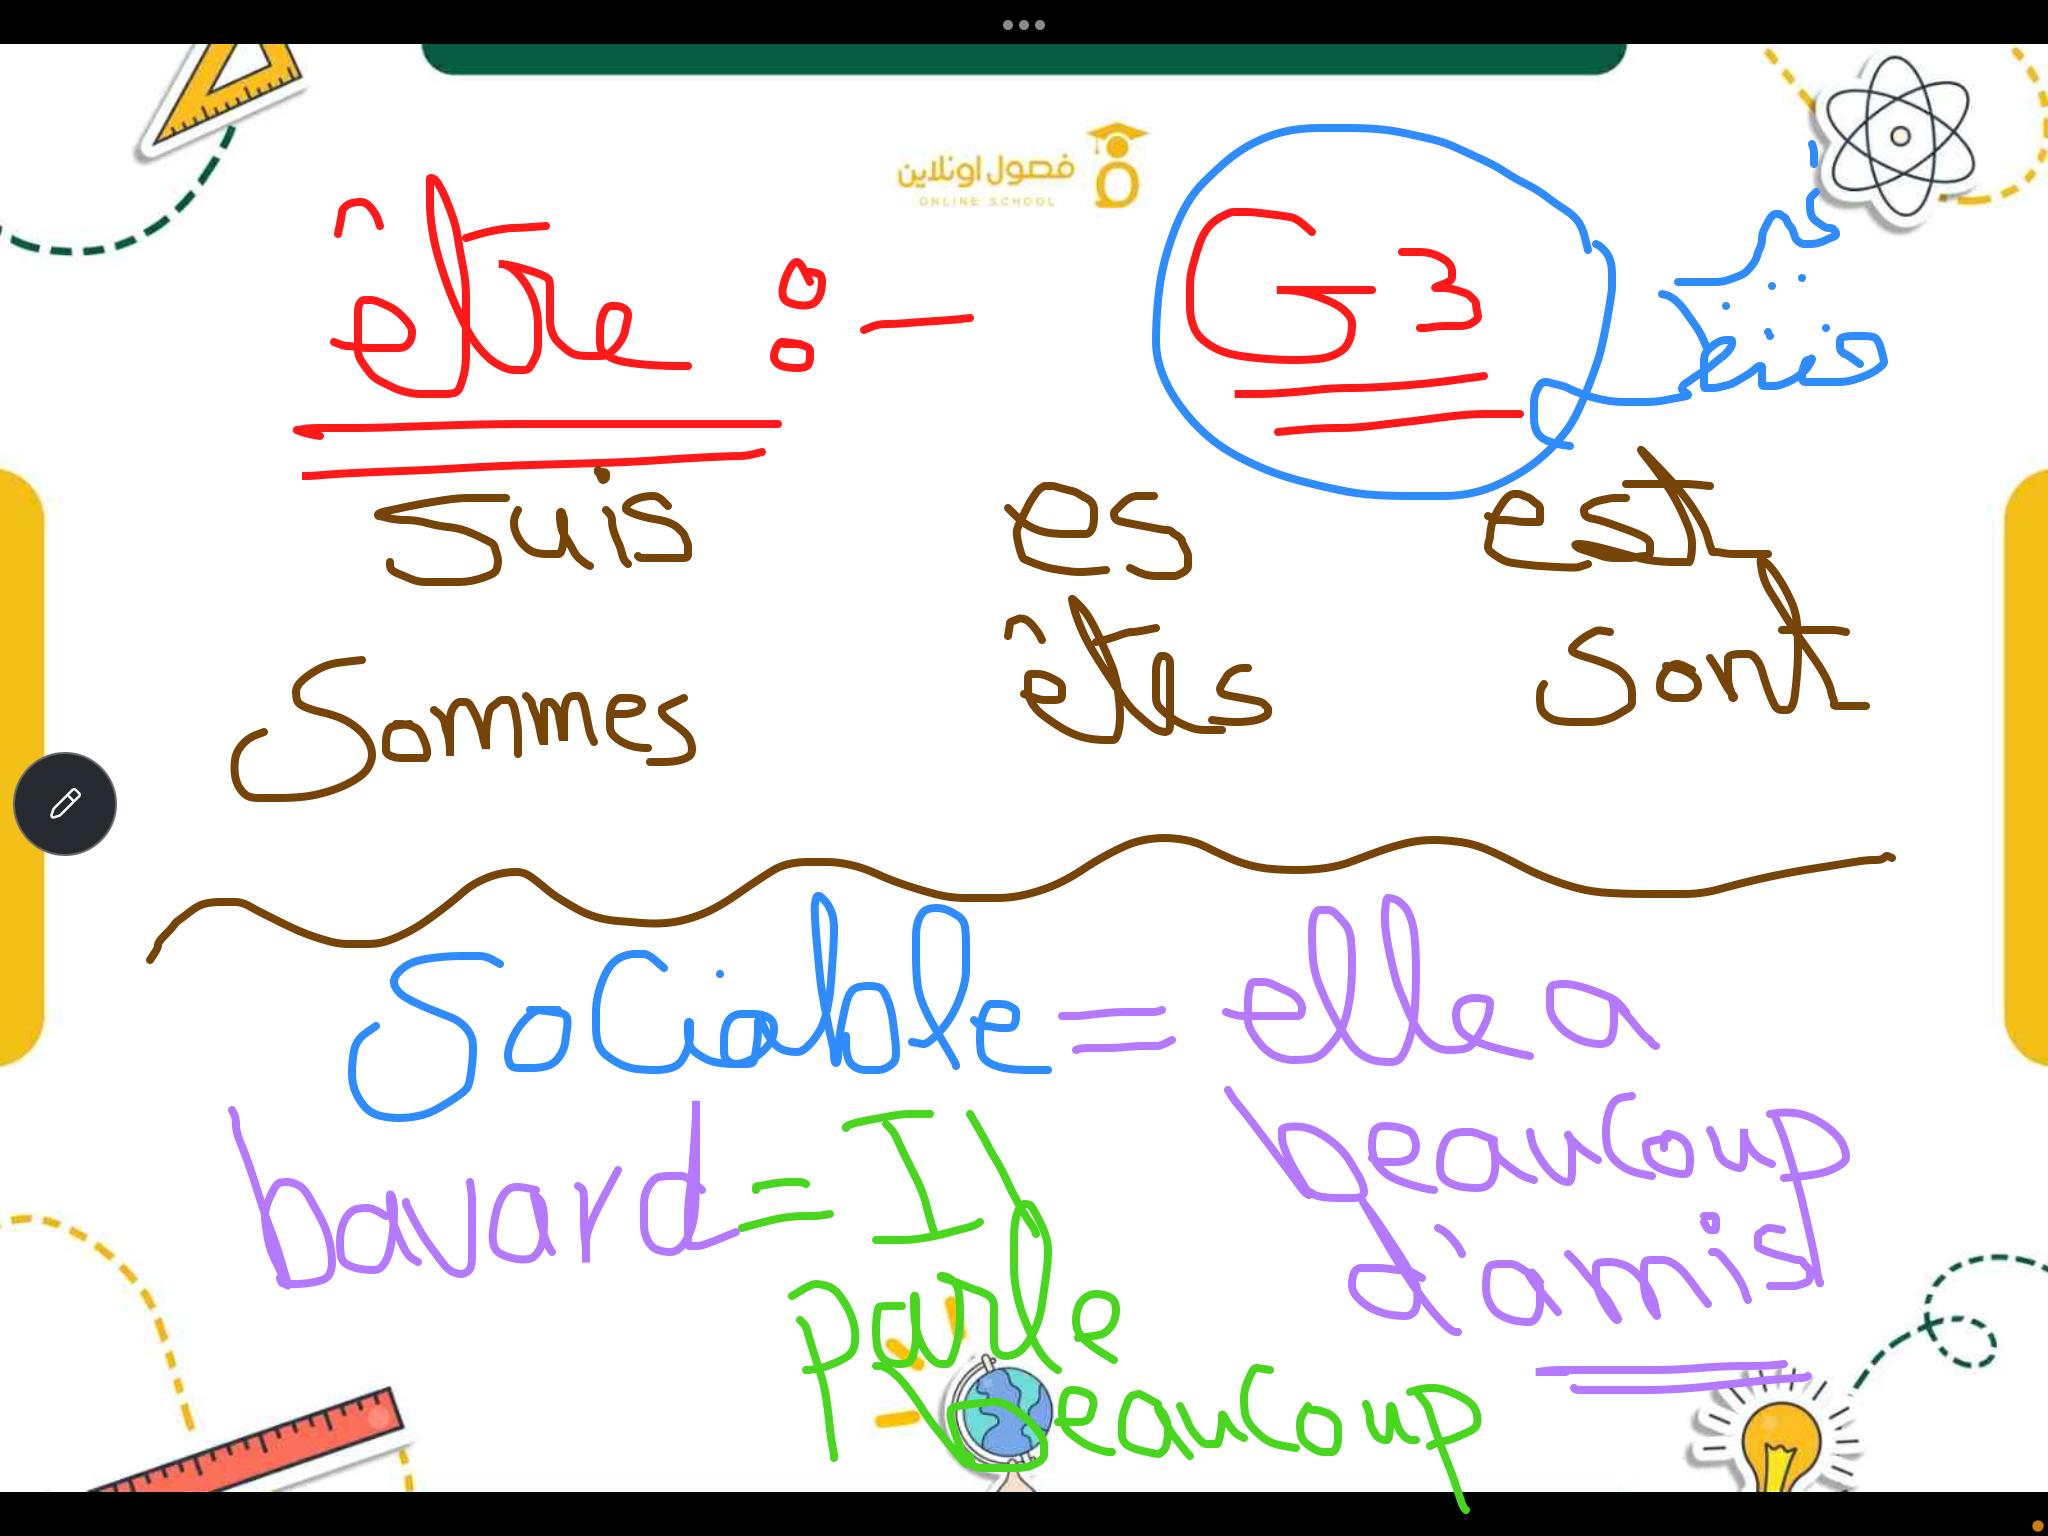 فصول اونلاين
ONLINE SCHOOL
être :- G3
suis es est
Sommes êtes sont
Sociable = elle a
beaucoup
d'amis
bavard = Il
parle
beaucoup